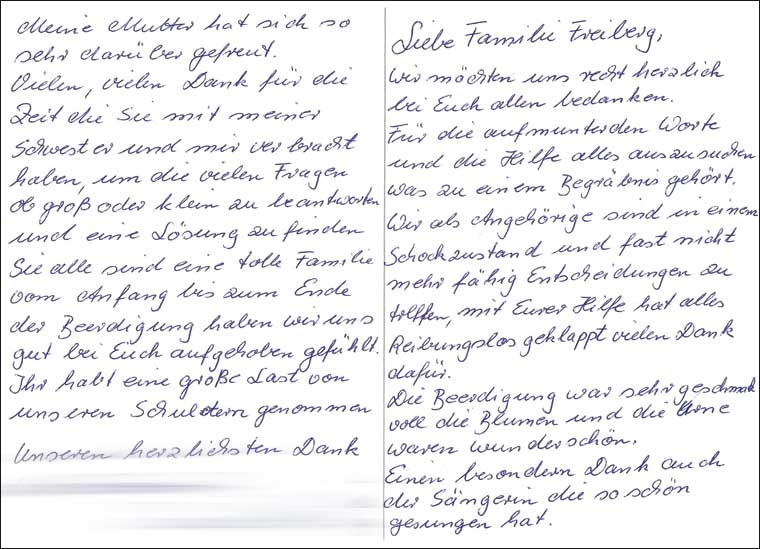 Liebe Familie Freiberg,
wir möchten uns recht herzlich
bei Euch allen bedanken.
Für die aufmunterden Worte
und die Hilfe alles auszusuchen
was zu einem Begräbnis gehört.
Wir als Angehörige sind in einem
Schockzustand und fast nicht
mehr fähig Entscheidungen zu
treffen, mit Eurer Hilfe hat alles
Reibungslos geklappt vielen Dank
dafür.
Die Beerdigung war sehr geschmack
voll die Blumen und die Urne
waren wunderschön.
Einen besondern Dank auch
der Sängerin die so schön
gesungen hat.
Meine Mutter hat sich so
sehr darüber gefreut.
Vielen, vielen Dank für die
Zeit die Sie mit meiner
Schwester und mir verbracht
haben, um die vielen Fragen
ob groß oder klein zu beantworten
und eine Lösung zu finden
Sie alle sind eine tolle Familie
vom Anfang bis zum Ende
der Beerdigung haben wir uns
gut bei Euch aufgehoben gefühlt.
Ihr habt eine große Last von
unseren Schultern genommen
Unseren herzlichsten Dank